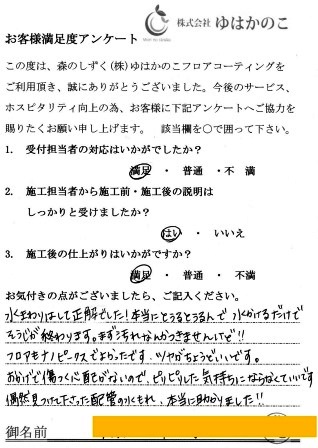 株式会社 ゆはかのこ
お客様満足度アンケート
この度は、森のしずく(株)ゆはかのこフロアコーティングを
ご利用頂き、誠にありがとうございました。今後のサービス、
ホスピタリティ向上の為、お客様に下記アンケートへご協力を
賜りたくお願い申し上げます。 該当欄を〇で囲って下さい。
1. 受付担当者の対応はいかがでしたか?
満足 ・ 普通 ・不 満
2. 施工担当者から施工前・施工後の説明は
しっかりと受けましたか?
はい ・ いいえ
3. 施工後の仕上がりはいかがですか?
満足 ・ 普通 ・ 不満
お気付きの点がございましたら、ご記入ください。
水まわりはして正解でした!本当にとぅるとぅるんで水かけるだけで
そうじが終わります。まず汚れなんかつきませんけど!!
フロアもナノピークスでよかったです。ツヤがちょうどいいです。
おかげで傷つく心配がないので、ピリピリした気持ちにならなくていいです
偶然見つけて下さった配管の水もれ、本当に助かりました!!
御名前